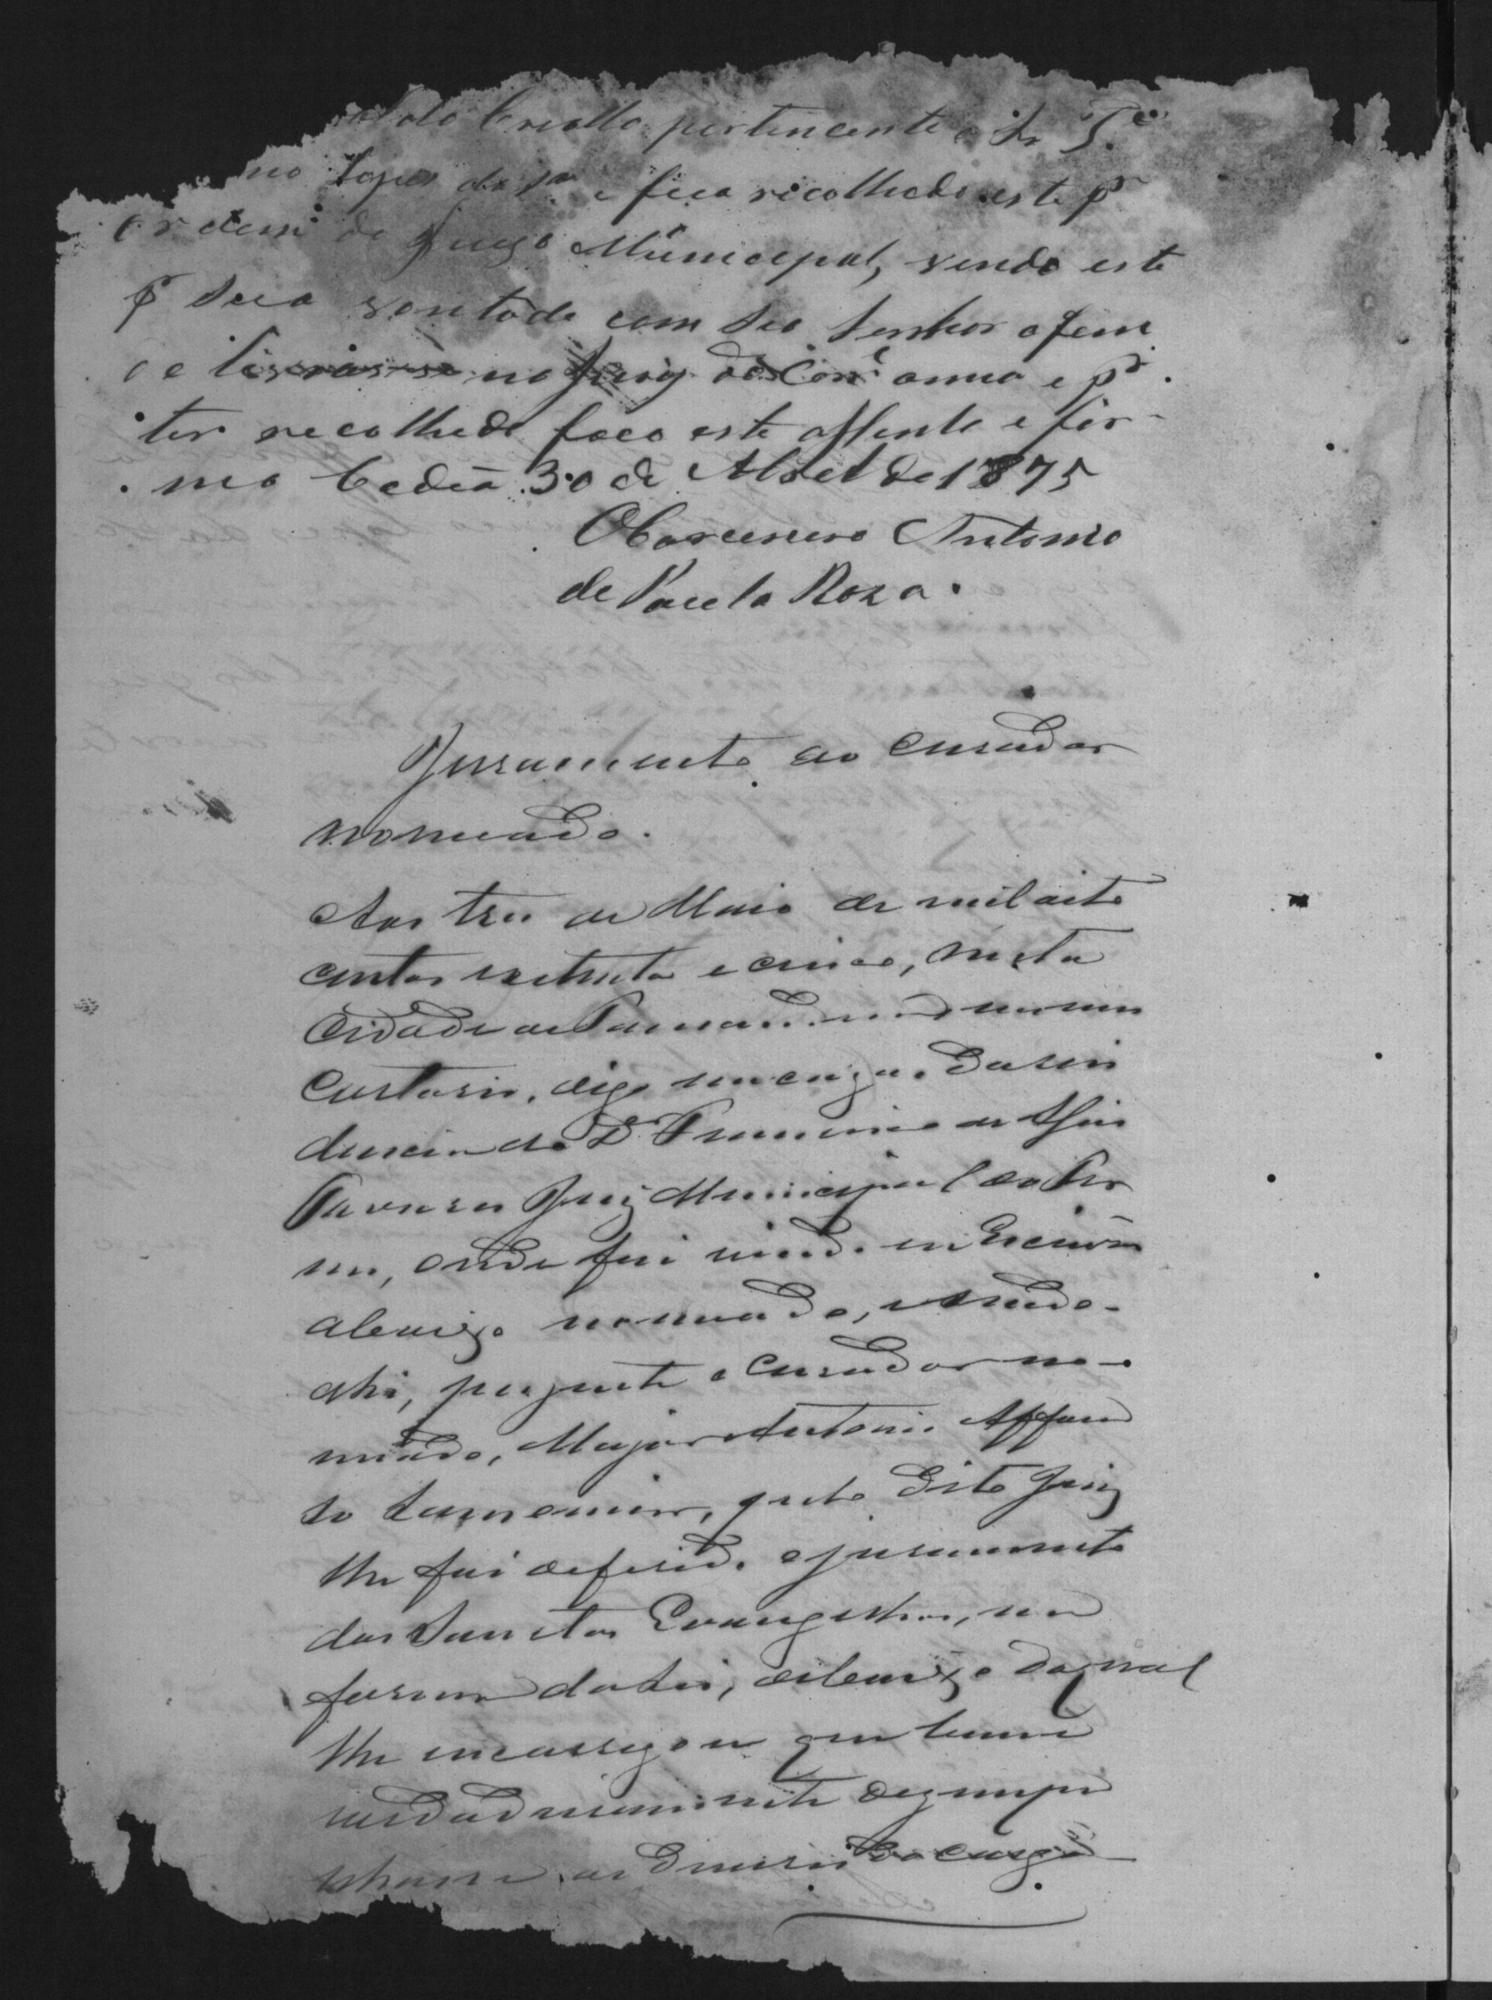 Criollo pertencente
no Lopes da S.ª e fica recolhido este pʳ
ordem do Juizo Municipal, vindo este
pʳ sua vontade com seu Senhor afim
de no Juizo anno e pʳ
ter recolhido faço este assento e fir-
mo Cadeia 30 de Abril de 1875
O Carcereiro Antonio
de Paula Roza.
Juramento ao curador
nomeado.
Aos tres de Maio de mil oito
centos setenta e cinco, nesta
Cidade de em meu
Cartorio, digo em caza da resi
dencia do Dʳ Francisco de Assis
Tavares Juiz Municipal do Ter
mo, onde fui vindo eu Escrivão
abaixo nomeado, e sendo
ahi, prezente o curador no-
miado, Major Antonio Affon
so pelo dito Juiz
lhe foi deferido o juramento
dos Sanctos Evangelhos, na
forma da Lei, debaixo do qual
lhe encarregou que bem e
verdadeiramente dezimpe
nhasse os deveres do cargo